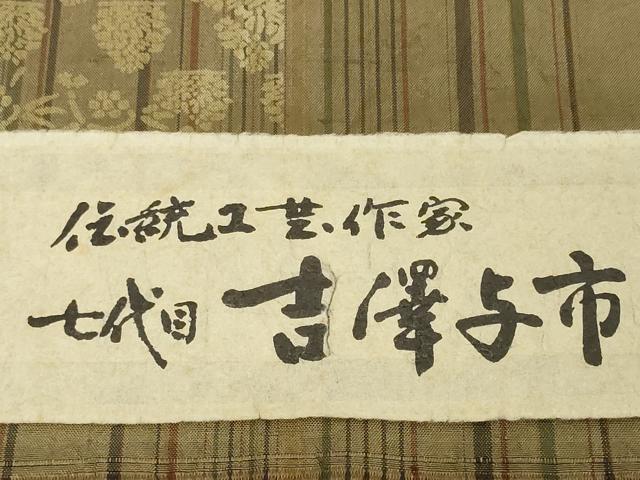 伝統工芸作家
七代目 吉澤与市